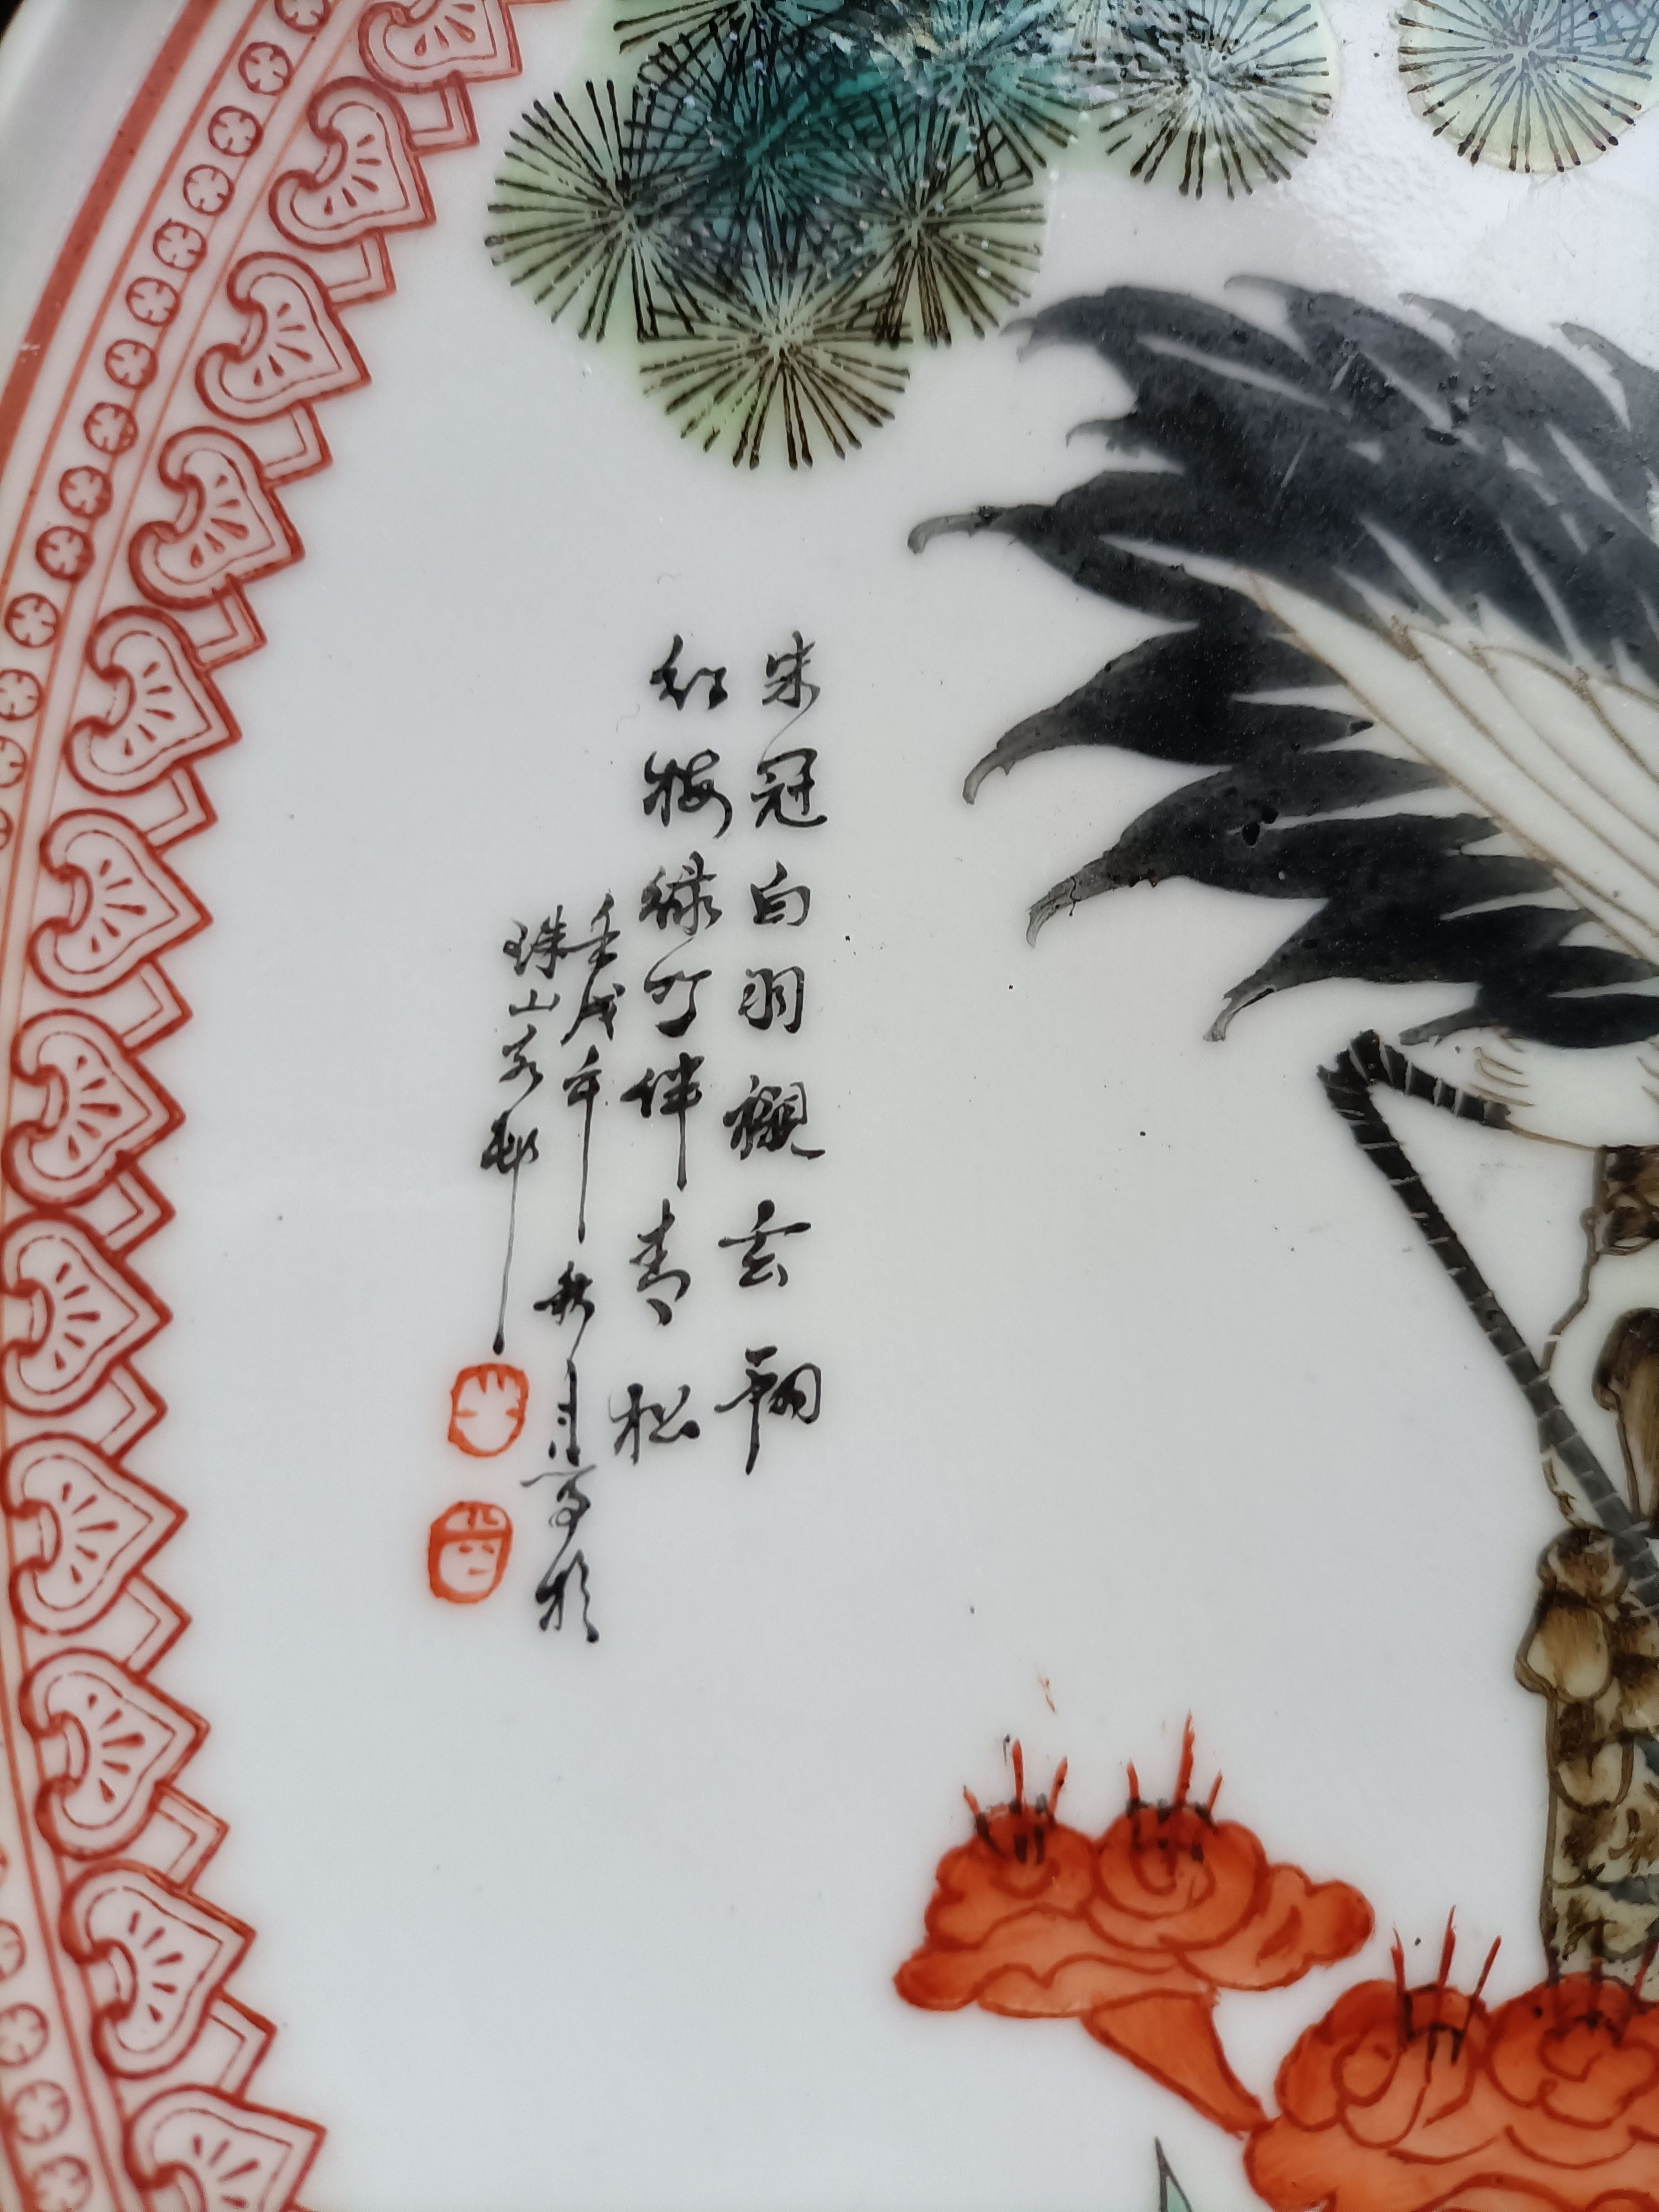 朱冠白羽襯玄翮
红梅绿竹伴青松
壬戌年秋月写於
珠山